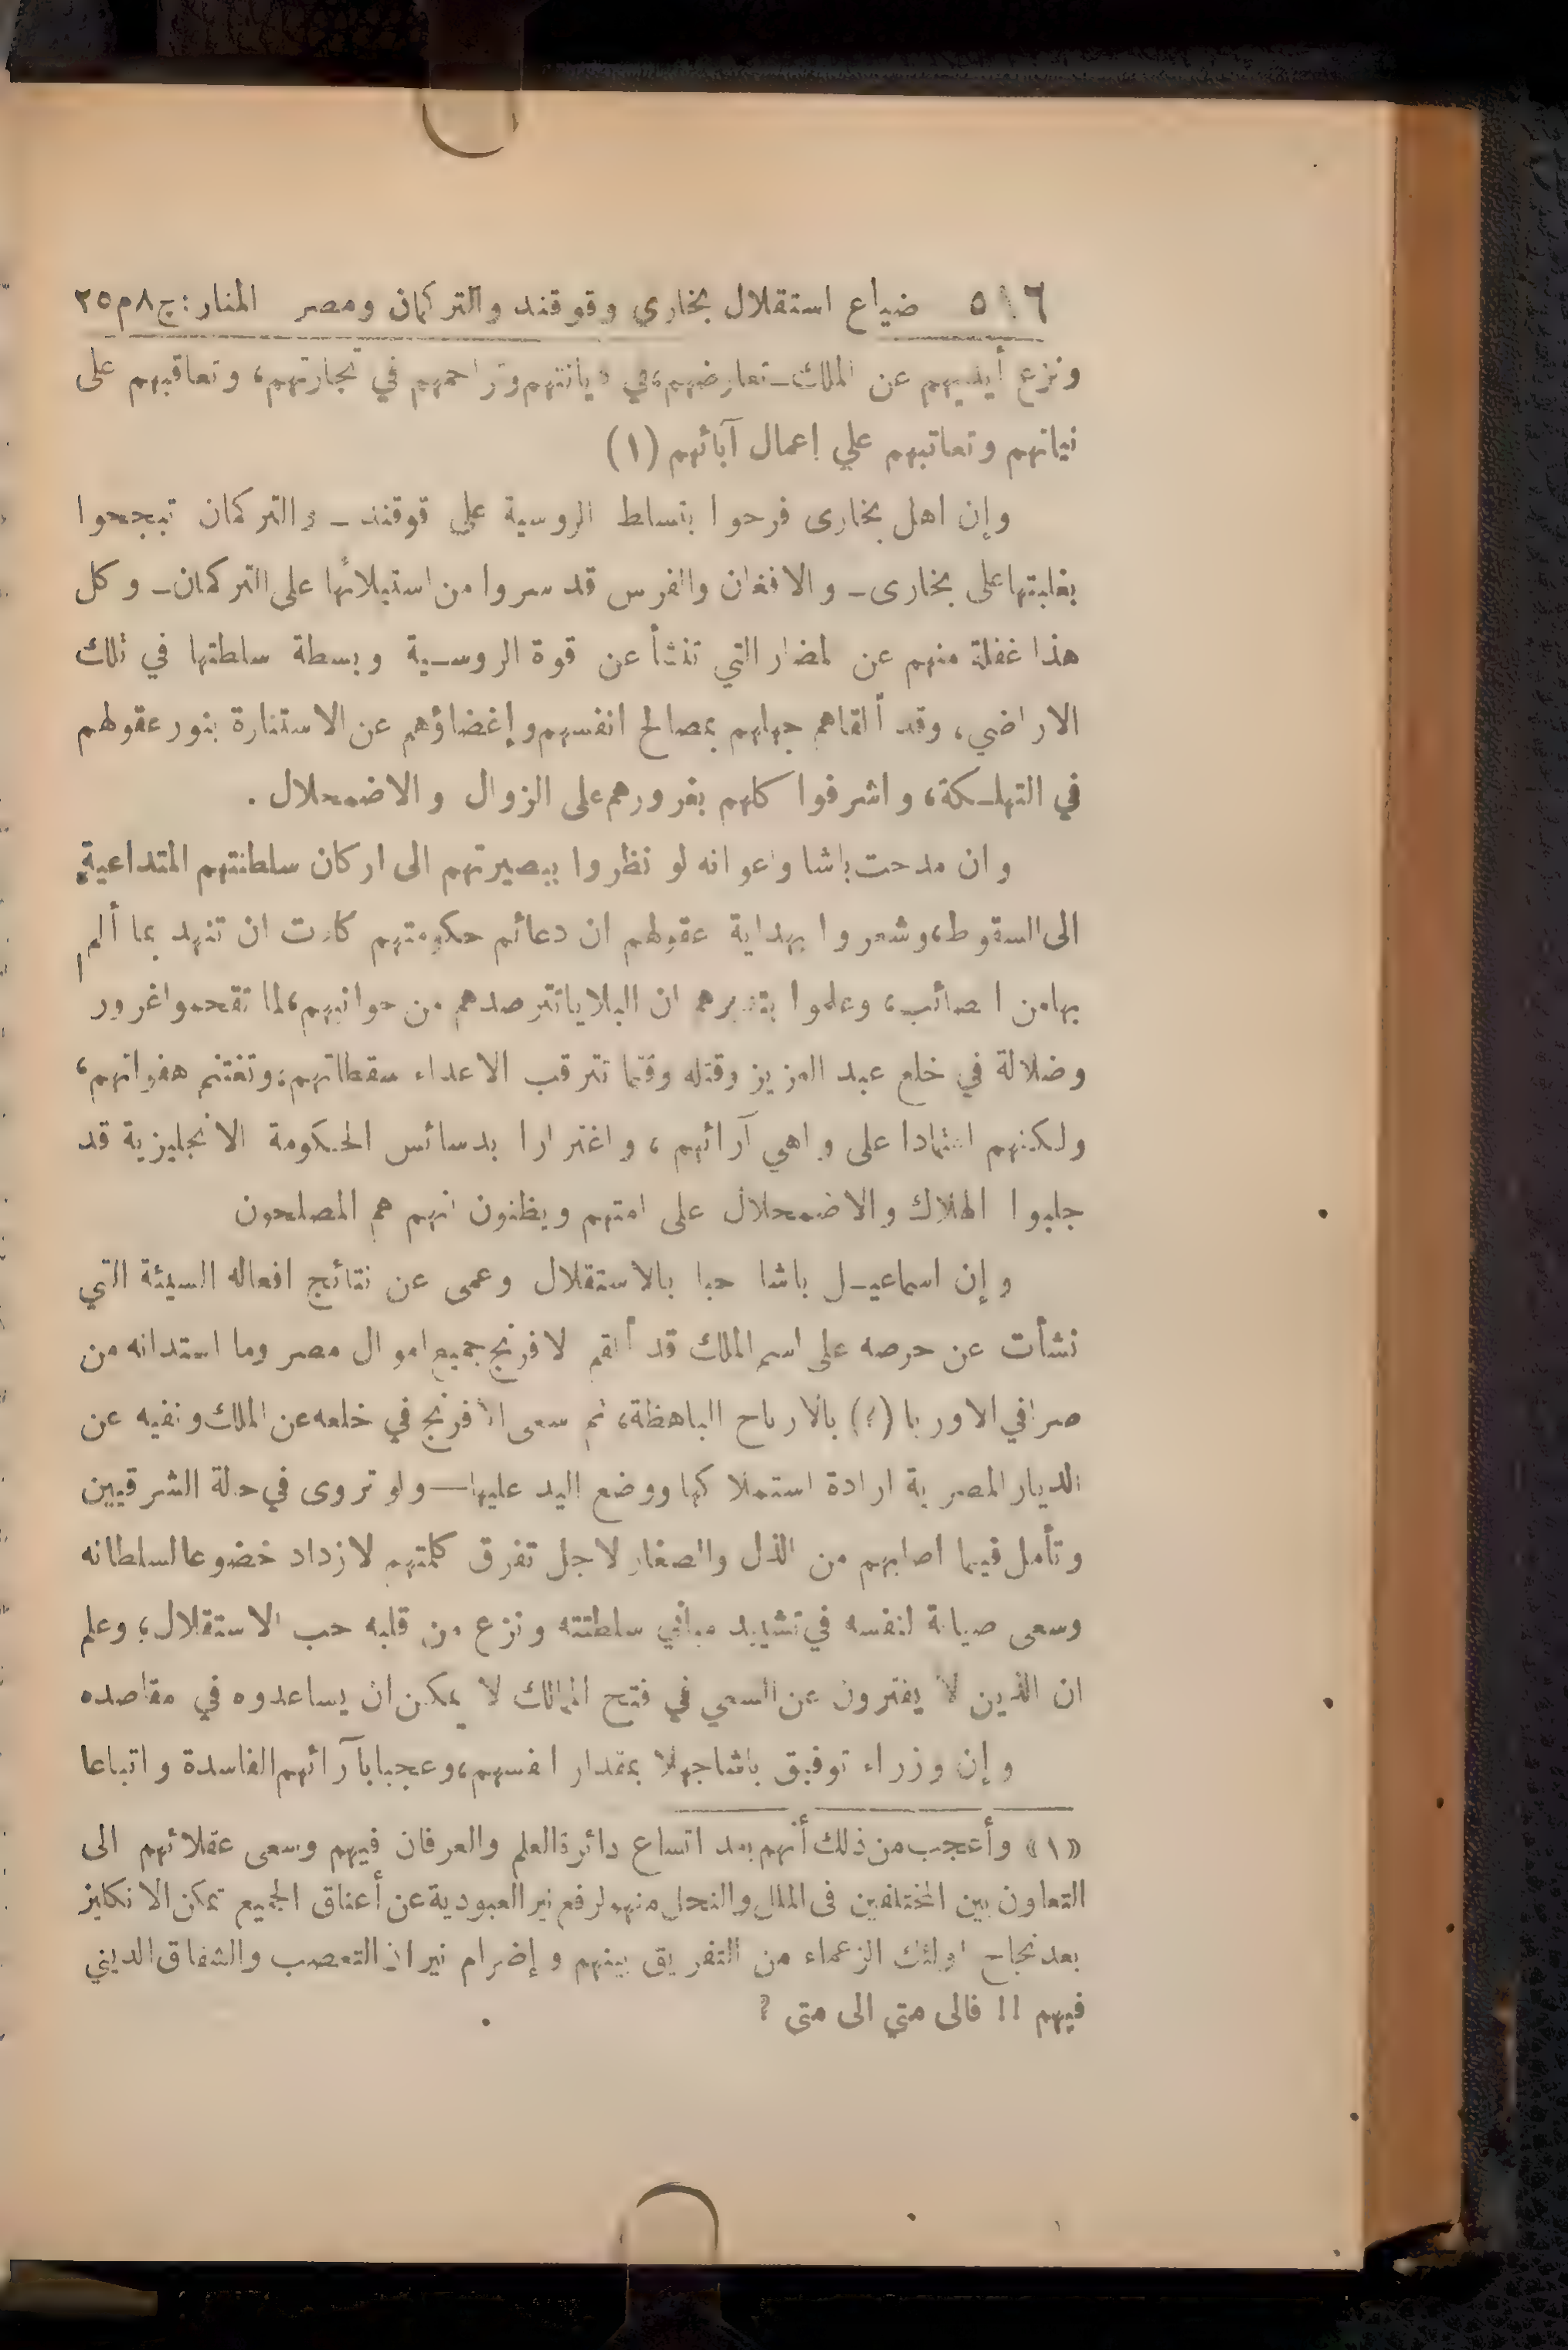 ٥١٦ ضياع استقلال بخارى وقوقند والتركمان ومصر المنار: ج٨م٢٥
ونزع أيديهم عن الملك ـ تعارضهم في ديانتهم وتزاحمهم في تجارتهم، وتعاقبهم على
نياتهم وتعاتبهم علي اعمال آبائهم (١)
وإن اهل بخارى فرحوا بتسلط الروسية على قوقند ـ والتركمان تبجحوا
بغلبتها على بخارى ـ والافغان والفرس قد سروا من استيلائها على التركمان ـ وكل
هذا غفلة منهم عن المضار التي تنشأ عن قوة الروسية وبسطة سلطتها في تلك
الاراضي، وقد ألقاهم جهلهم بمصالح انفسهم وإغضاؤهم عن الاستنارة بنور عقولهم
في التهلكة، واشرفوا كلهم بغرورهم على الزوال والاضمحلال .
وان مدحت باشا واعوانه لو نظروا ببصيرتهم الى اركان سلطنتهم المتداعية
الى السقوط، وشعروا بهداية عقولهم ان دعائم حكومتهم كادت ان تنهد بما ألم
بها من المصائب، وعلموا بتدبرهم ان البلايا تترصدهم من جوانبهم، لما تقحموا غرور
وضلالة في خلع عبد العزيز وقتله وقتما تترقب الاعداء سقطاتهم، وتغتنم هفواتهم،
ولكنهم اعتمادا على واهي آرائهم ، واغترارا بدسائس الحكومة الانجليزية قد
جلبوا الهلاك والاضمحلال على امتهم ويظنون انهم هم المصلحون
وإن اسماعيل باشا حبا بالاستقلال وعمى عن نتائج افعاله السيئة التي
نشأت عن حرصه على اسم الملك قد ألقم الافرنج جميع اموال مصر وما استدانه من
صرافي الاوربا (؟) بالارباح الباهظة، ثم سعى الافرنج في خلعه عن الملك ونفيه عن
الديار المصرية ارادة استملاكها ووضع اليد عليها — ولو تروى في حالة الشرقيين
وتأمل فيما اصابهم من الذل والصغار لاجل تفرق كلمتهم لازداد خضوعا لسلطانه
وسعى صيانة لنفسه في تشييد مباني سلطنته ونزع من قلبه حب الاستقلال، وعلم
ان الذين لا يفترون عن السعي في فتح الممالك لا يمكن ان يساعدوه في مقاصده
وإن وزراء توفيق باشا جهلا بمقدار انفسهم، وعجبا بآرائهم الفاسدة واتباعا
«١» وأعجب من ذلك أنهم بعد اتساع دائرة العلم والعرفان فيهم وسعى عقلائهم الى
التعاون بين المختلفين فى الملل والنحل منهم لرفع نير العبودية عن أعناق الجميع تمكن الانكليز
بعد نجاح اولئك الزعماء من التفريق بينهم وإضرام نيران التعصب والشقاق الديني
فيهم !! فالى متي الى متى ؟